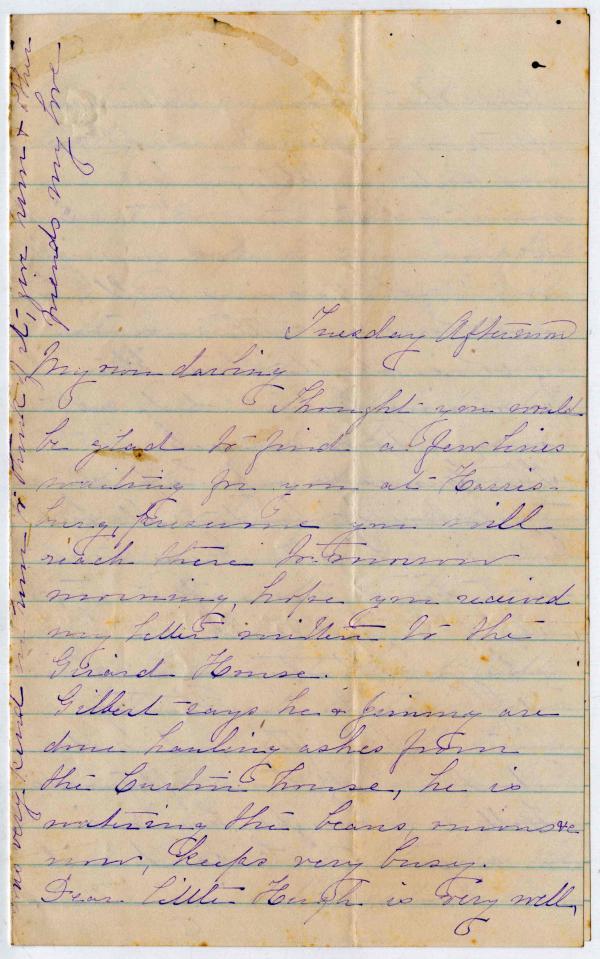 Tuesday Afternoon
My own darling
Thought you would
be glad to find a few lines
waiting for you at Harris-
burg, presume you will
reach there to-morrow
morning, hope you received
my letter written to the
Girard House.
Gilbert says he & Jimmy are
done hauling ashes from
the Curtin house, he is
watering the beans, onions &c
now, keeps very busy.
Dear little Hugh is very well,
very kind in him to think of it, give him & other
friends my love